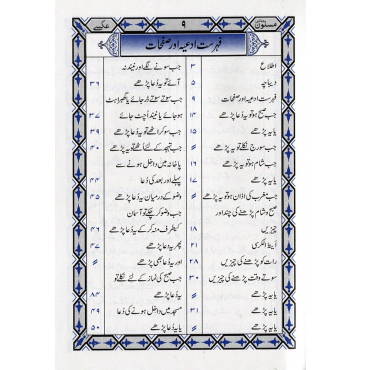 مسنون دعائیں ۹ عکسی
فہرست ادعیہ اور صفحات
اطلاع ۳
دیباچہ ۵
فہرست ادعیہ اور صفحات ۹
جب صبح ہو تو یہ دعا پڑھے ۱۴
یا یہ پڑھے ۱۵
جب سورج نکلے تو یہ پڑھے ״
جب شام ہو تو یہ پڑھے ۱۶
یا یہ پڑھے ۱۷
جب مغرب کی اذان ہو تو یہ پڑھے ״
صبح و شام پڑھنے کی چند اور
چیزیں ۱۸
آیۃ الکرسی ۲۱
رات کو پڑھنے کی چیزیں ۲۸
سوتے وقت پڑھنے کی چیزیں ۳۰
یا یہ پڑھے ״
یا یہ پڑھے ۳۱
یا یہ پڑھے ״
جب سونے لگے اور نیند نہ
آئے تو یہ دعا پڑھے ۳۶
جب سوتے سوتے ڈر جائے یا گھبراہٹ
ہو جائے یا نیند اُچٹ جائے ۳۷
جب سو کر اٹھے تو یہ دعا پڑھے ۳۹
جب تہجد کے لئے اٹھے تو یہ پڑھے ۴۰
پاخانہ میں داخل ہونے سے
پہلے اور بعد کی دُعا ۴۴
وضو کے درمیان یہ دُعا پڑھے ۴۵
جب وضو کر چکے تو آسمان
کیطرف منہ کر کے یہ دُعا پڑھے ۴۶
پھر یہ دُعا پڑھے ۴۷
اور یہ دُعا بھی پڑھے ״
جب صبح کی نماز کے لئے نکلے تو
یہ دُعا پڑھے ۴۸
مسجد میں داخل ہونے کی دُعا ۴۹
یا یہ دُعا پڑھے ۵۰